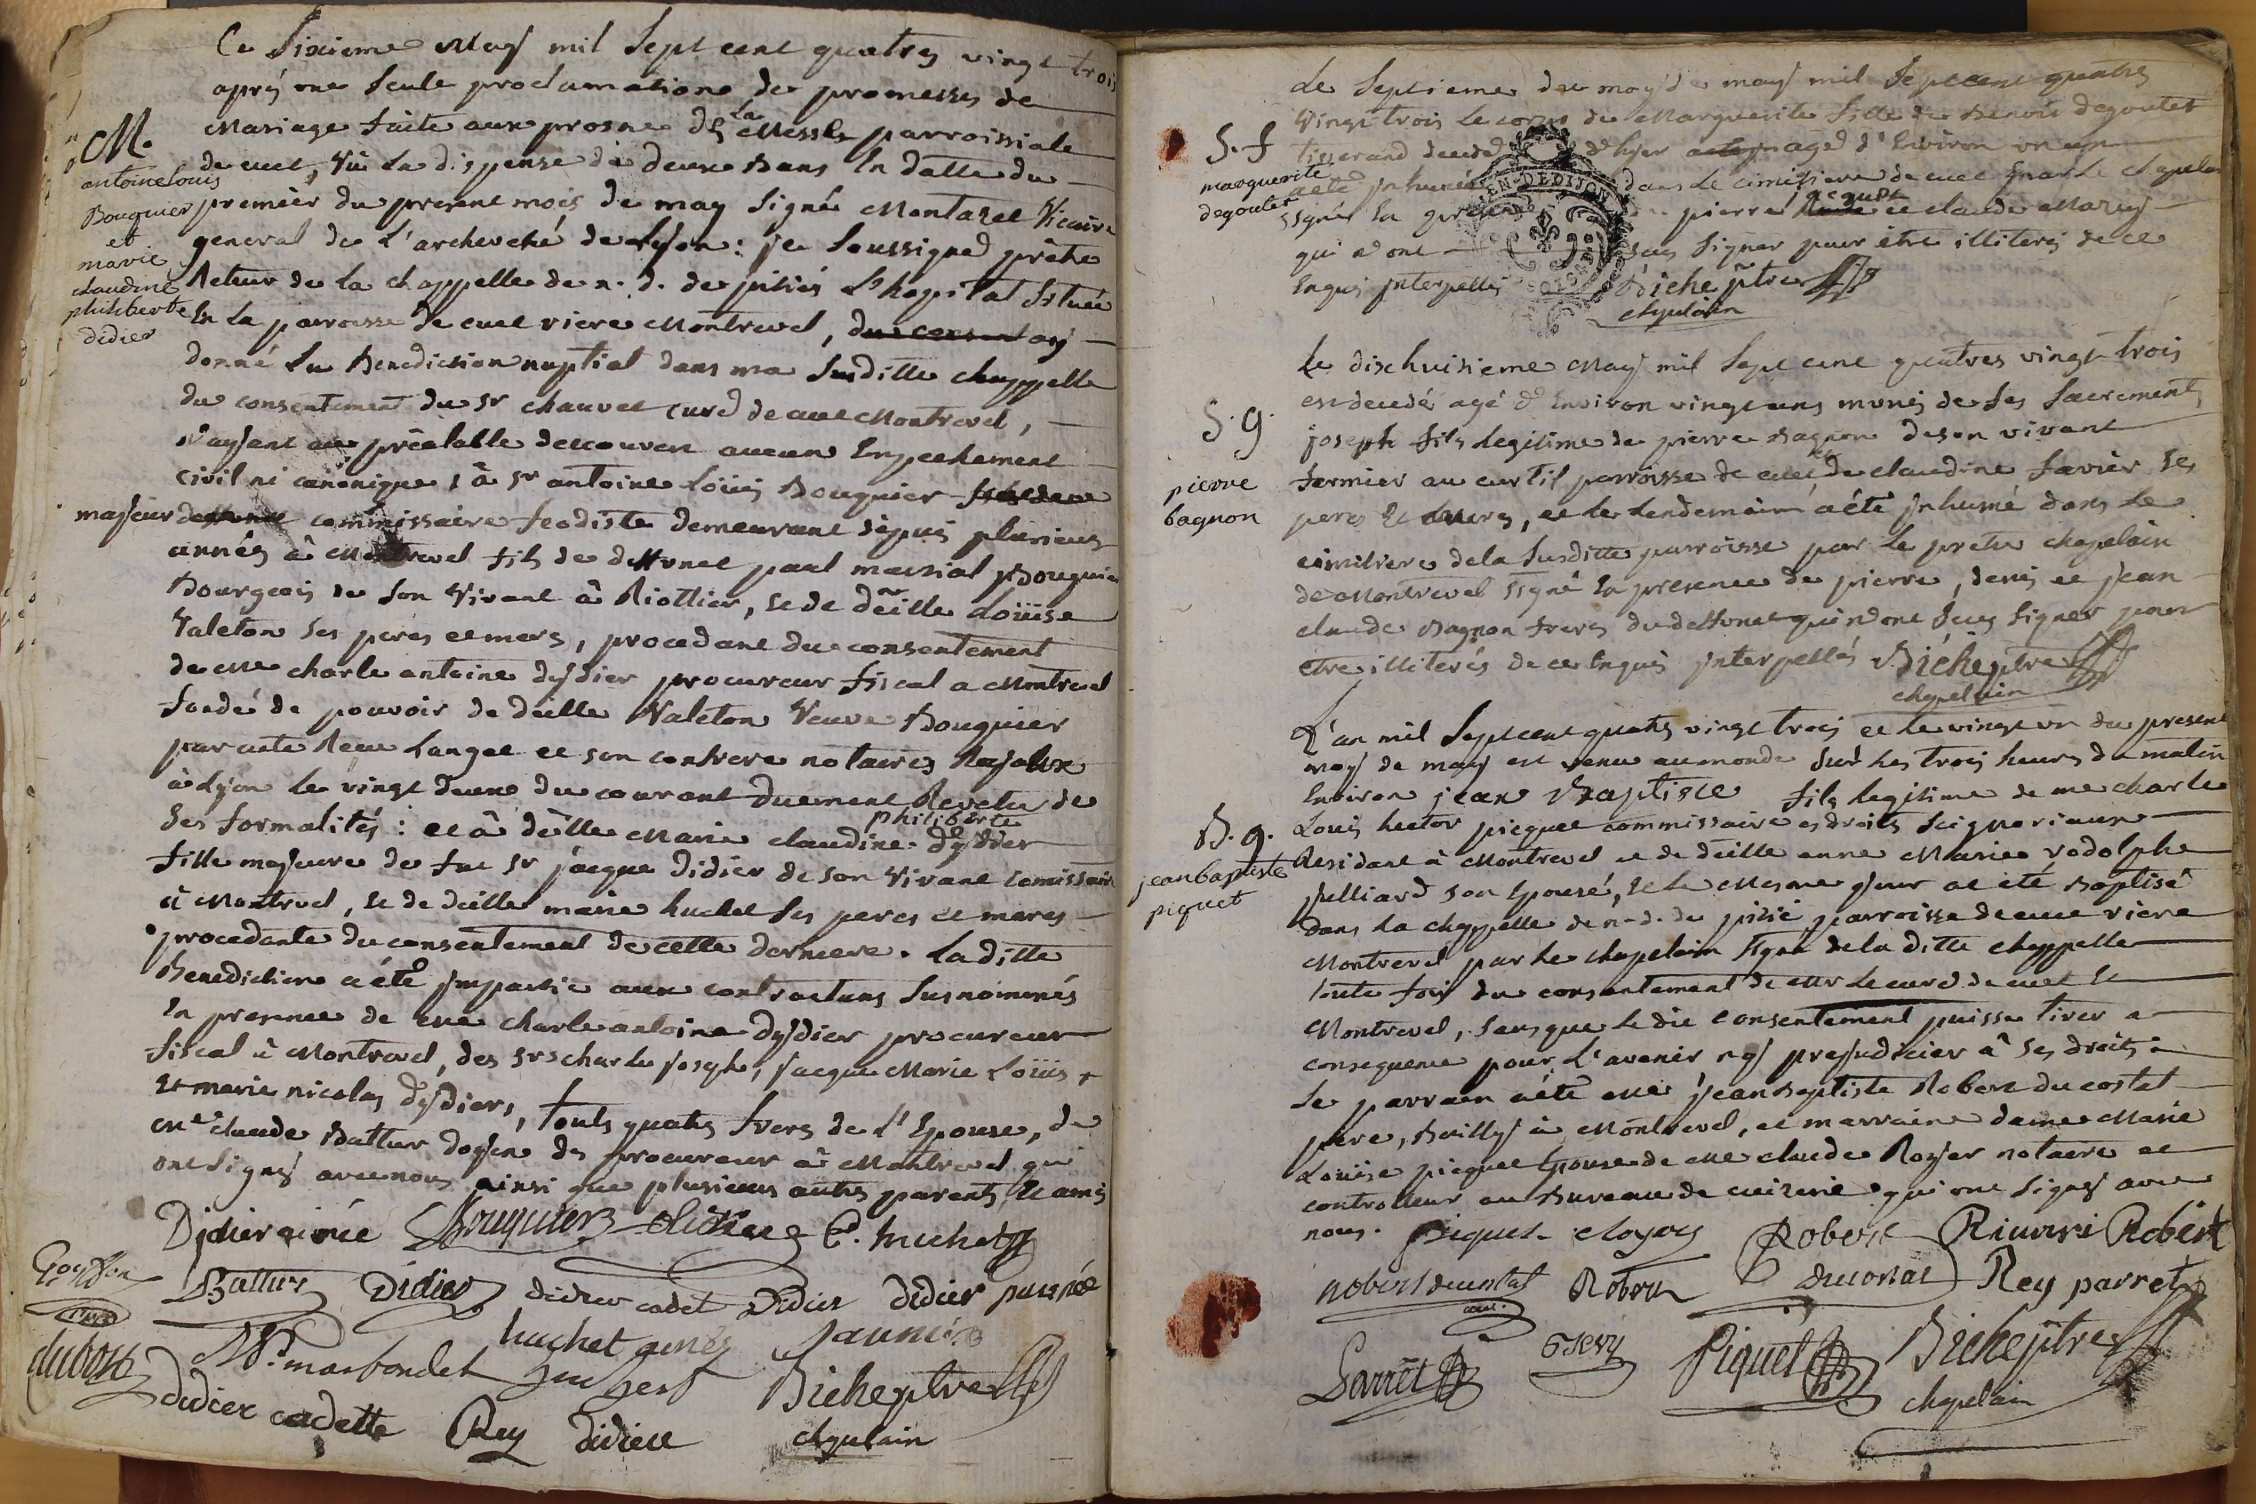 Ce Sixieme May mil Sept cent quatres vingt trois
aprés une Seule proclamations de promesses de
Mariage faite aux prosne de La Messe parroissiale
de cuet, Vü la dispense de deux Bans En datte du
premier du present mois de may Signé Montazet Vicaire
general de L'archeveché de Lyon : je Soussigné prêtre
Recteur de la chappelle de n. d. de pitiés L'hopital Situeé
En la parroisse de cuet viere Montrevel, ay
donné La Benediction nuptial dans ma Susditte chappelle
du consentement du Sr chauvet curé de cuet Montrevel,
N'ayant au préalable decouvert aucun Empechement
civil ni canonique, à Sr antoine Loüis Bouquier
commissaire feodiste demeurant depuis plusieurs
années à Montrevel fils de deffunct paul martial Bouquier
Bourgeois de Son Vivant à Riottier, et de dêille Loüise
Valeton Ses peres et meres, procedant du consentement
de Me charle antoine dydier procureur fiscal a Montrevel
fondé de pouvoir de dêille Valeton Veuve Bouquier
par acte Recu Langet et son confrere notaires Royaux
à Lyon le vingt deux du courant Duement Revetu de
Ses formalités : et à dêille Marie claudine philiberte dydier
fille majeure de feu Sr jacque Didier de son Vivant Comissaire
à Montrevel, et de dêille marie huchet Ses peres et meres
procedante du consentement de cette derniere. La ditte
Benediction a été jmpartie aux contractans Susnommés
En presence de me charle antoine dydier procureur
fiscal à Montrevel, des Srs charle joseph, jacque Marie Loüis
et marie nicolas dydiers, touts quatres freres de L'Epouse, de
me claude Battur doyen des procureur à Montrevel qui
ont Signés avec nous ainsi que plusieurs autres parents et amis
M.
antoine Louis
Bouquier
et
marie
claudine
philiberte
didier
majeur
Didier aimée Bouquier didier C. huchet
Battur Didier didier cadet Didier didier puisnée
huchet ainés
dubost
didier cadette Rey didier Bicheptre
chapelain
Le Septieme du moy de may mil Sept cent quatres
Vingt trois Le corps de Marguerite fille de Benoit degoutet
tisserand decedé d'hyer agé d'Environ un an
a eté jnhumé dans Le cimetiere de cuet par Le chapelain
Ssigné En presence de pierre et claude Marey
qui n'ont Sçus Signer pour être illiterés de ce
Enquis jnterpellés Biche ptre
chapelain
S. f
marguerite
degoutet
Le dixhuitieme May mil Sept cent quatres vingt trois
est decedé agé d'Environ vingt ans munis de Ses Sacrements
joseph fils Legitime de pierre Bagnon de son vivant
fermier au curtil parroisse de cuet et de claudine favier Ses
peres et Meres, et Le Lendemain a été jnhumé dans Le
cimitiere de la Susditte parroisse par Le pretre chapelain
de Montrevel Ssigné En presence de pierre, denis et jean
claude Bagnon freres du deffunct qui n'ont Sçus Signer pour
etre illiterés de ce Enquis jnterpellés Biche ptre
chapelain
S. g.
pierre
bagnon
L'an mil Sept cent quatres vingt trois et Le vingt un du present
moy de may est venu au monde Sur Les trois heures du matin
Environ jean Baptiste fils Legitime de me charle
Louis hector picquet commissaire es droits Seigneuriaux
Residant à Montrevel et de dêille anne Marie rodolphe
julliard Son Epouse, et Le Mesme jour a eté Baptisé
dans La chappelle de n. d. de pitié parroisse de cuet viere
Montrevel par Le chapelain Signe de la ditte chappelle
toute fois du consentement de Mr Le curé de cuet et
Montrevel, Sans que Le dit Consentement puisse tirer a
consequence pour L'avenir ny prejudicier à Ses droits
Le parrain a été me jean Baptiste Robert du costal
pere, Bailly à Montrevel, et marraine dame Marie
Loüise picquet Epouse de me claude Royer notaire et
controlleur au Bureau de cuizerie qui ont Signés avec
nous. Piquet Royer Robert Robert
B. g.
jean baptiste
piquet
robert ducostal Robert ducostal Rey parret
Parret Piquet Biche ptre
chapelain